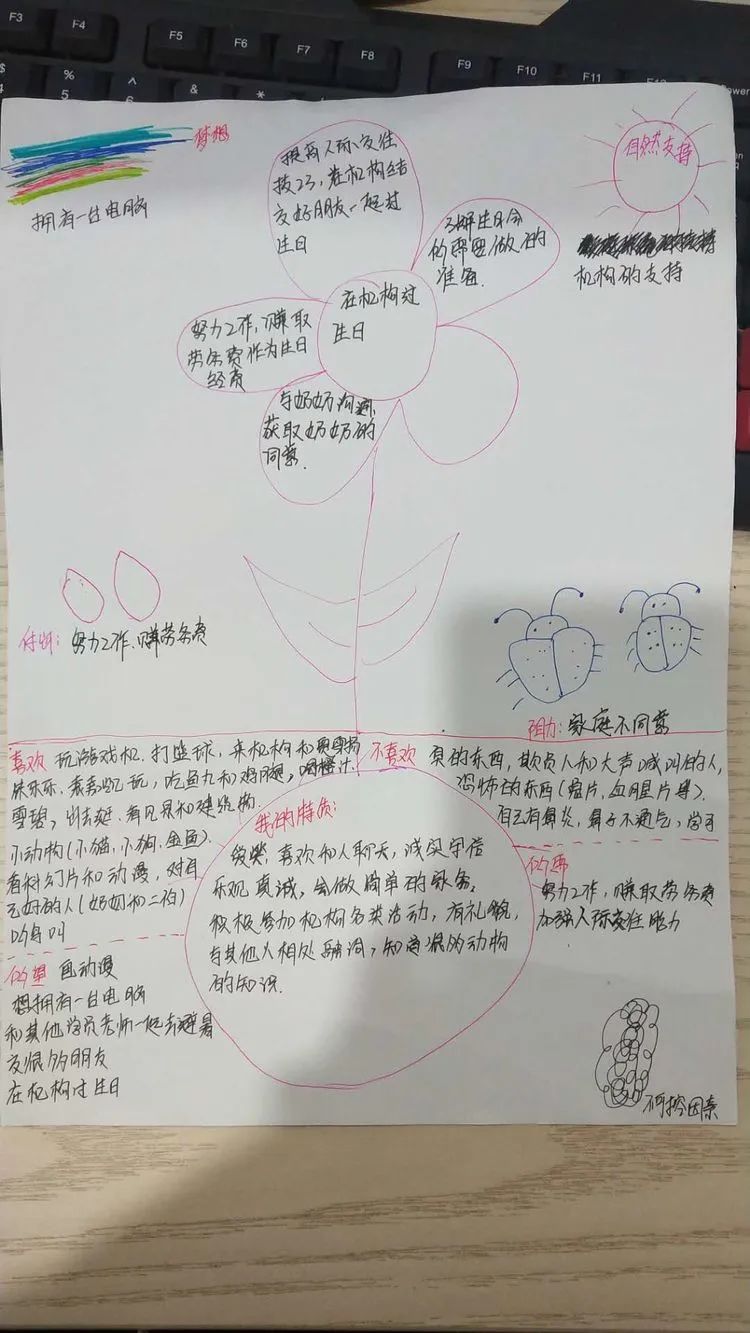 F3 F4 F5 F6 F7 F8 F9 F10 F11 F12
$ % ^ & *
4 5 6
Power
梦想
拥有一台电脑
提高人际交往
技巧,在机构结
交好朋友一起过
生日
了解生日会
的需要做的
准备.
自然支持
机构的支持
在机构过
生日
努力工作,赚取
劳务费作为生日
经费
与奶奶沟通,
获取奶奶的
同意.
努力工作、赚劳务费
阻力: 家庭不同意
喜欢 玩游戏机,打篮球,来机构和
玩,吃鱼丸和鸡腿,喝橙汁.
雪碧,出去逛.看风景和建筑物.
小动构(小猫,小狗.金鱼).
看科幻片和动漫,对自
己好的人(奶奶和二伯)
不喜欢 臭的东西,欺负人和大声喊叫的人,
恐怖的东西(鬼片,血腥片等).
自己有鼻炎,鼻子不通气,学习
我的特质:
爱笑,喜欢和人聊天,诚实守信
乐观 真诚,会做简单的家务,
积极参加机构各类活动,有礼貌,
与其他人相处融洽,知道很多动构
的知识.
努力工作,赚取劳务费
加强人际交往能力
画动漫
想拥有一台电脑
和其他学员老师一起去避暑
交很多朋友
在机构过生日
不可控因素